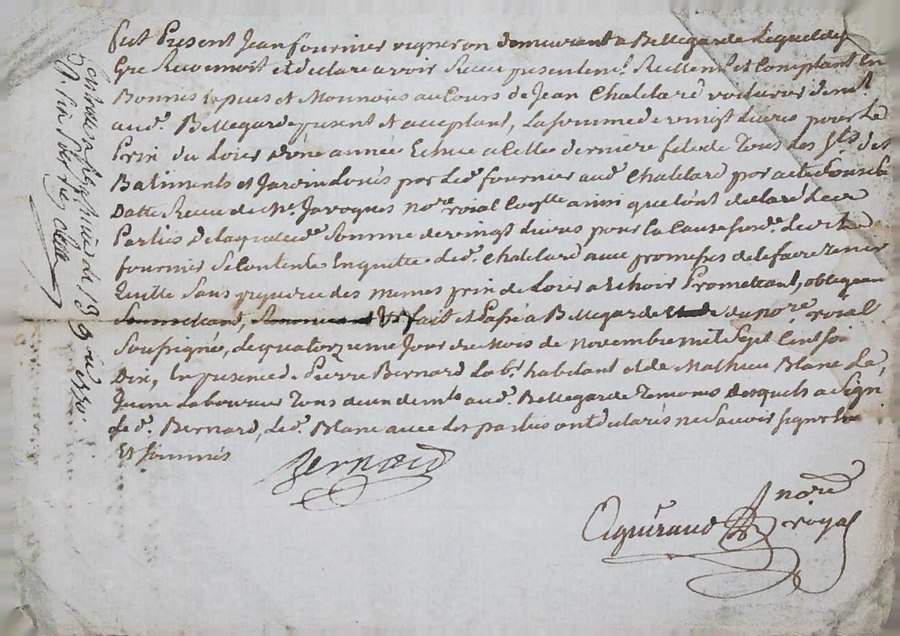 fut Present Jean fournier vigneron demeurant a Bellegarde Lequel de
Gré Reconnoit et declare avoir Receu presentemt. Reellemt. et Comptant En
Bonnes Especes et Monnoies au Cours de Jean Chatelard voiturier demt.
aud. Bellegarde present et acceptant, La somme de vingt Livres pour Le
Prix du Loier d'une année Echue a Celle derniere fete de Tous Les Sts. des
Batiments et Jardin Loués par Led. fournier aud. Chatelard par acte
Datte Receu de Me. Javogues nore. roial Coglle. ainsi que L'ont declaré Les
Parties De laquelle de. Somme de vingt Livres pour La Cause susde. Led.
fournier Se Contente En quitte Led. Chatelard avec promesses de Le faire tenir
Quitte Sans prejudice des mêmes prix de Loier a Echoir Promettant, obligeant
fait et Passé a Bellegarde du nore. roial
Soussigné, Le quatorzieme Jour du Mois de novembre mil Sept Cent soi
Dix, En presence de Pierre Bernard Lab. habitant et de Mathieu Blanc Le
Jeune Laboureur Tous deux demts. aud. Bellegarde Temoins Desquels a Signé
Led. Bernard, Led. Blanc avec Les parties ont declarés ne Savoir signer En
Et Sommés
Bernard
nore
royal
Controllé a le 1770